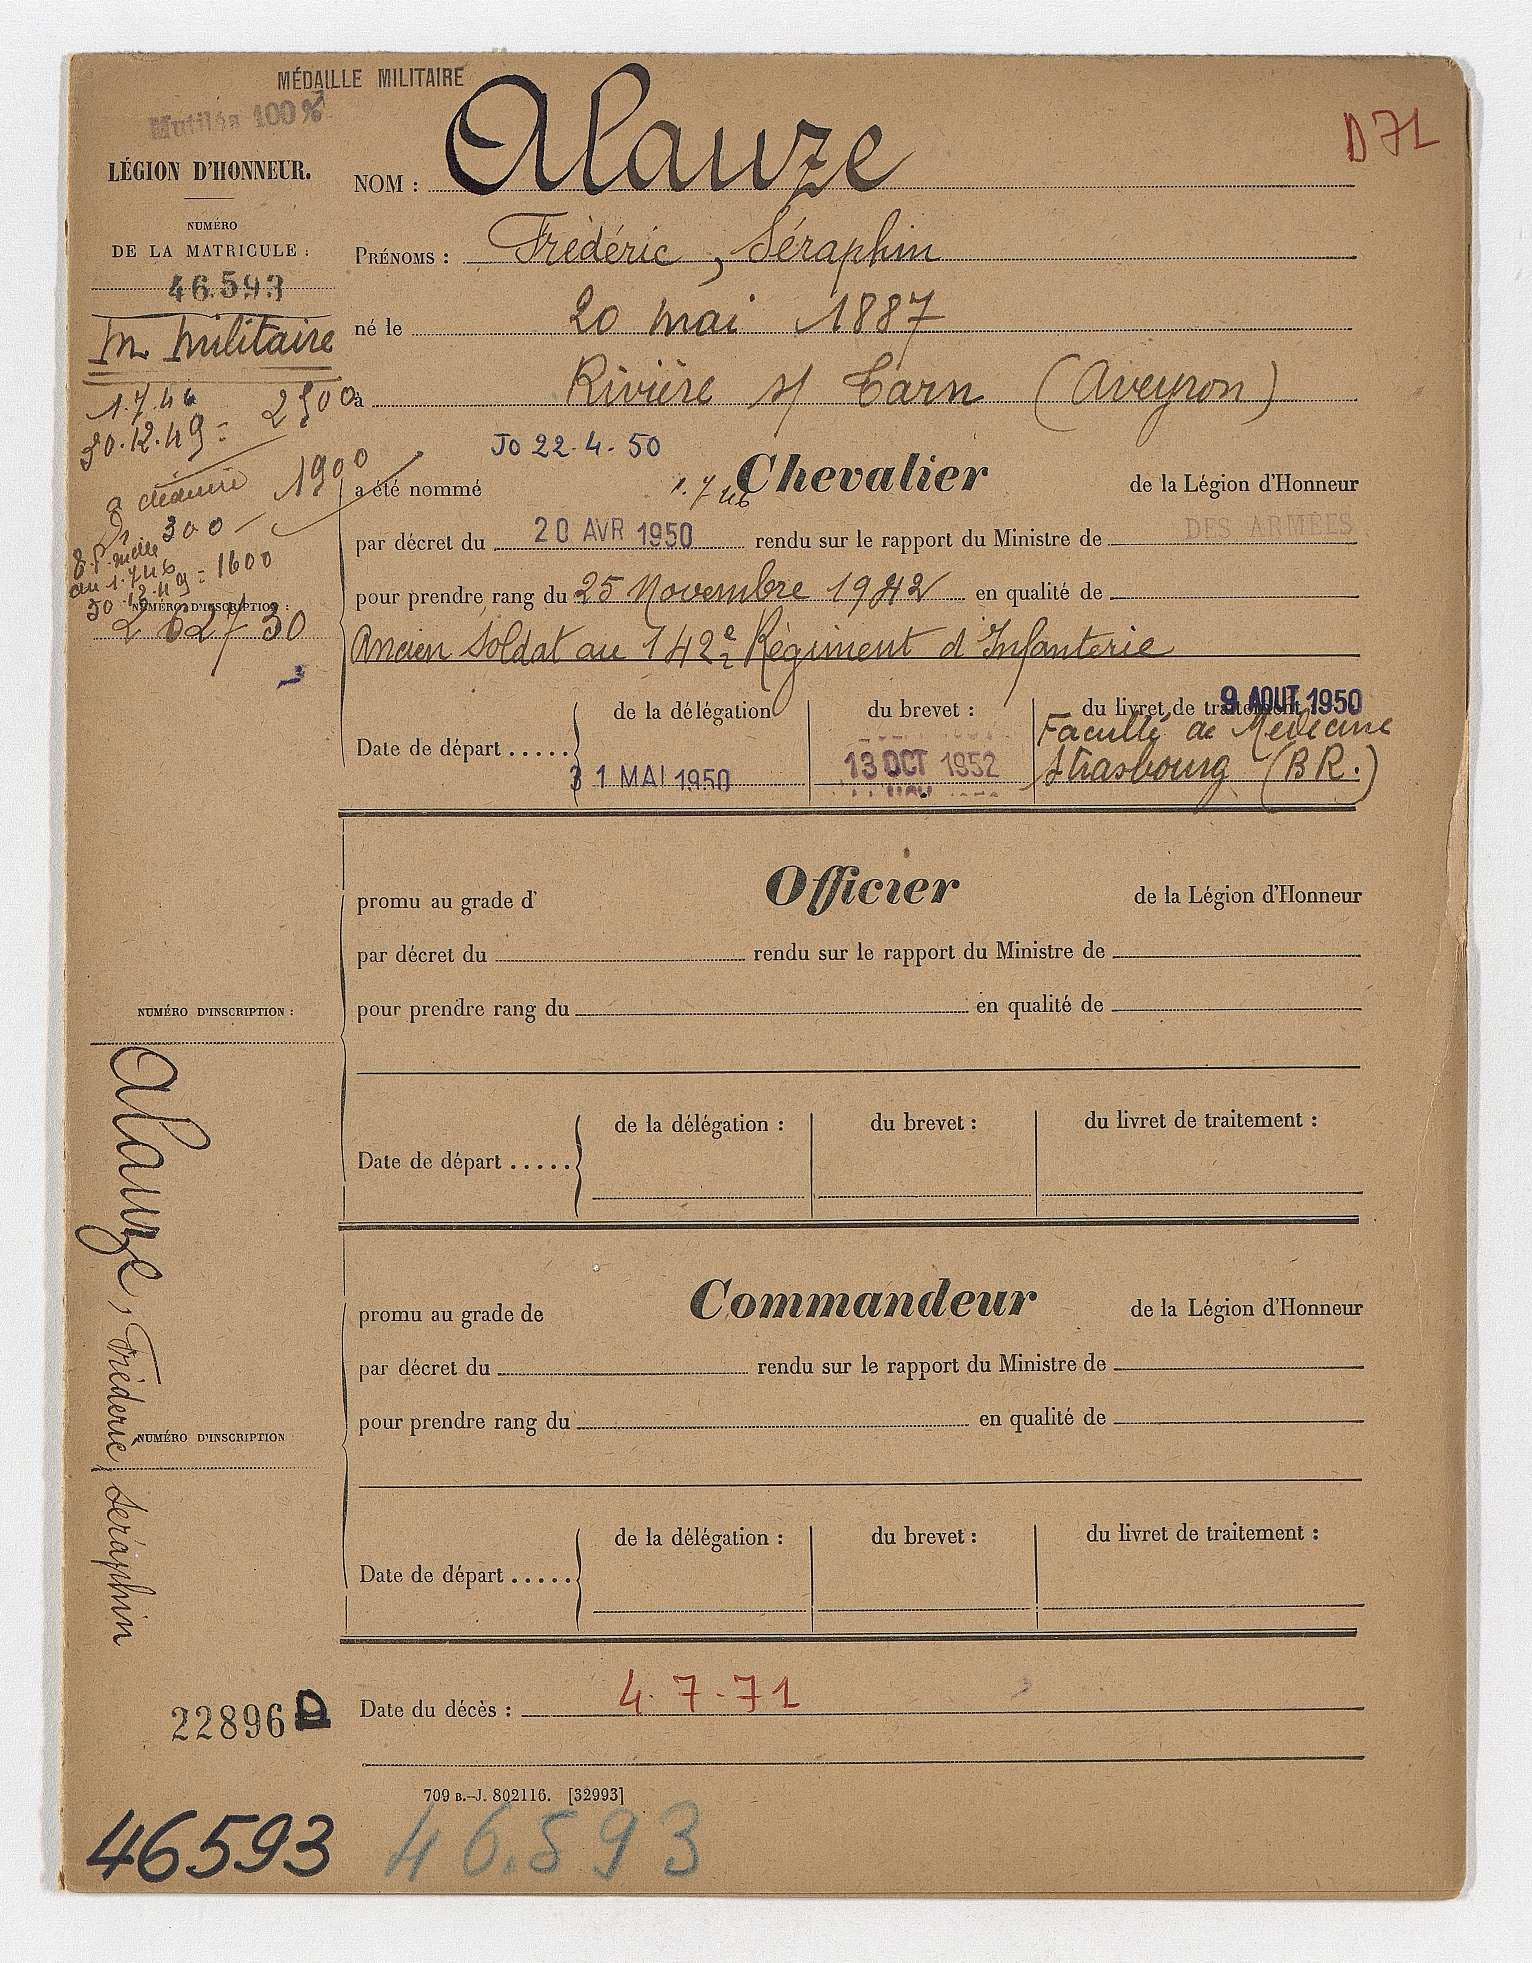 MÉDAILLE MILITAIRE
Mutilés 100%
D 71
LÉGION D'HONNEUR.
NUMÉRO
DE LA MATRICULE :
46.593
M. Militaire
1.7.46
30.12.49 = 2500
a déduire 1900
300
au 1.7.46
30.12.49 = 1600
NUMÉRO D'INSCRIPTION :
NOM : Alauze
PRÉNOMS : Frédéric, Séraphin
né le 20 mai 1887
à Rivière s/ Tarn (Aveyron)
JO 22.4.50
1.7.46
a été nommé Chevalier de la Légion d'Honneur
par décret du 20 AVR 1950 rendu sur le rapport du Ministre de DES ARMÉES
pour prendre rang du 25 Novembre 1942 en qualité de
Ancien Soldat au 142e Régiment d'Infanterie
9 AOUT 1950
de la délégation du brevet : du livret de traitement :
Date de départ ..... 31 MAI 1950 13 OCT 1952 Faculté de Médecine
Strasbourg (B R.)
promu au grade d' Officier de la Légion d'Honneur
par décret du rendu sur le rapport du Ministre de
pour prendre rang du en qualité de
NUMÉRO D'INSCRIPTION :
de la délégation : du brevet : du livret de traitement :
Date de départ .....
Alauze, Frédéric, Séraphin
promu au grade de Commandeur de la Légion d'Honneur
par décret du rendu sur le rapport du Ministre de
pour prendre rang du en qualité de
NUMÉRO D'INSCRIPTION
de la délégation : du brevet : du livret de traitement :
Date de départ .....
22896 D
Date du décès : 4.7.71
709 B.-J. 802116. [32993]
46593 46.593